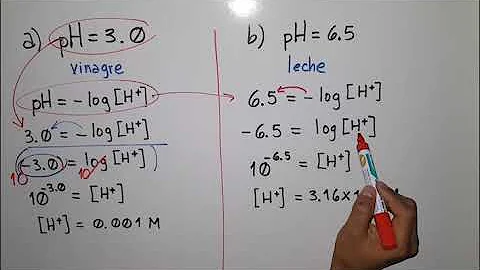 a) pH = 3.0
vinagre
pH = -log [H⁺]
3.0 = -log [H⁺]
10 -3.0 = 10 log [H⁺]
10⁻³·⁰ = [H⁺]
[H⁺] = 0.001 M
b) pH = 6.5
leche
6.5 = -log [H⁺]
-6.5 = log [H⁺]
10⁻⁶·⁵ = [H⁺]
[H⁺] = 3.16 x 1